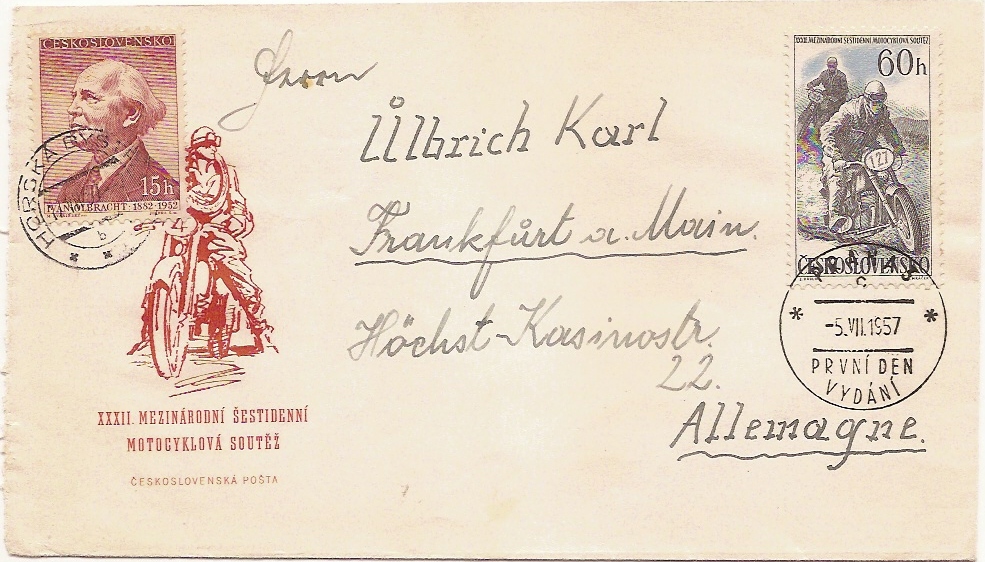 ČESKOSLOVENSKO
15h
IVAN OLBRACHT · 1882-1952
HORSKÁ
XXXII. MEZINÁRODNÍ ŠESTIDENNÍ
MOTOCYKLOVÁ SOUTĚŽ
ČESKOSLOVENSKÁ POŠTA
Herrn
Ülbrich Karl
Frankfürt a. Main.
Höchst-Kasinostr.
22.
Allemagne.
XXXII. MEZINÁRODNÍ ŠESTIDENNÍ MOTOCYKLOVÁ SOUTĚŽ
60h
127
ČESKOSLOVENSKO
PRAHA
C
-5.VII.1957
PRVNÍ DEN
VYDÁNÍ